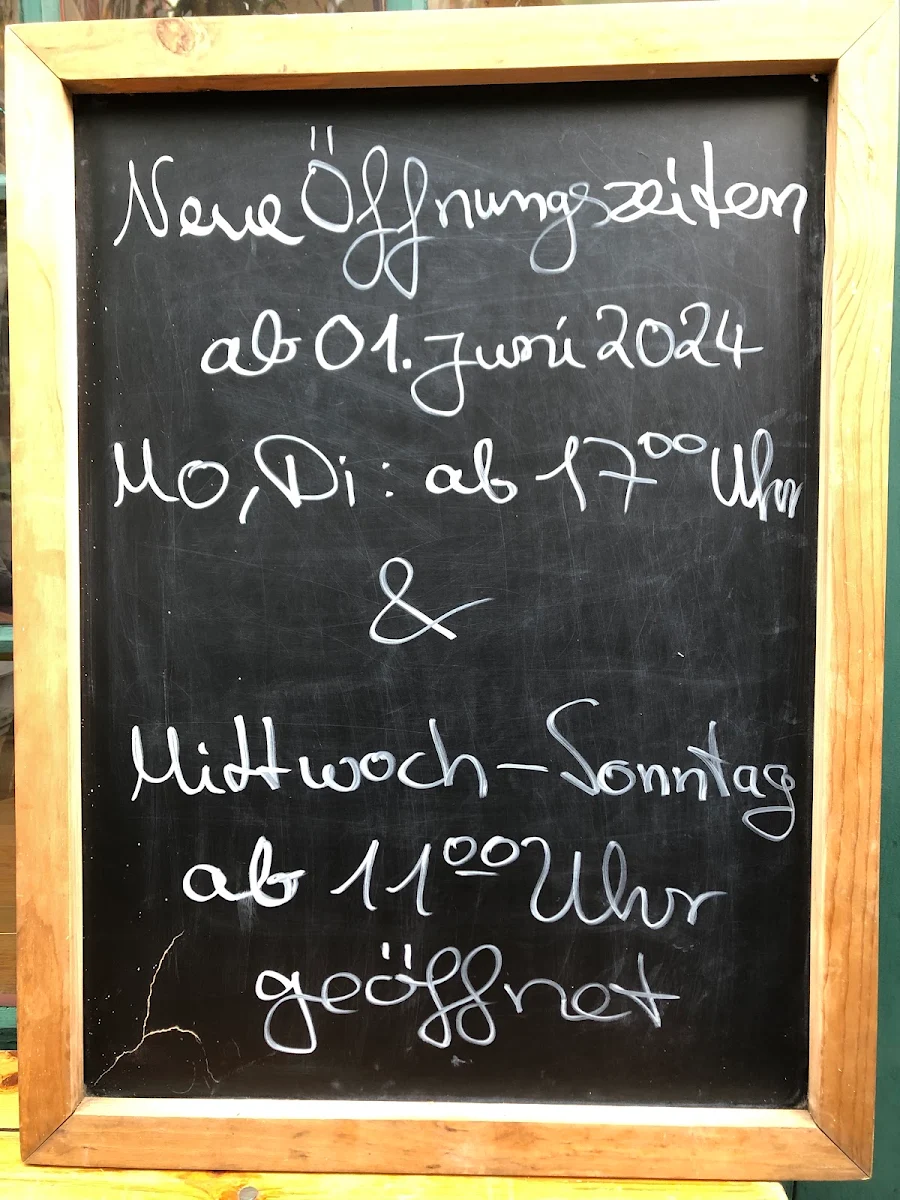 Neue Öffnungszeiten
ab 01. Juni 2024
Mo, Di: ab 17⁰⁰ Uhr
&
Mittwoch - Sonntag
ab 11⁰⁰ Uhr
geöffnet